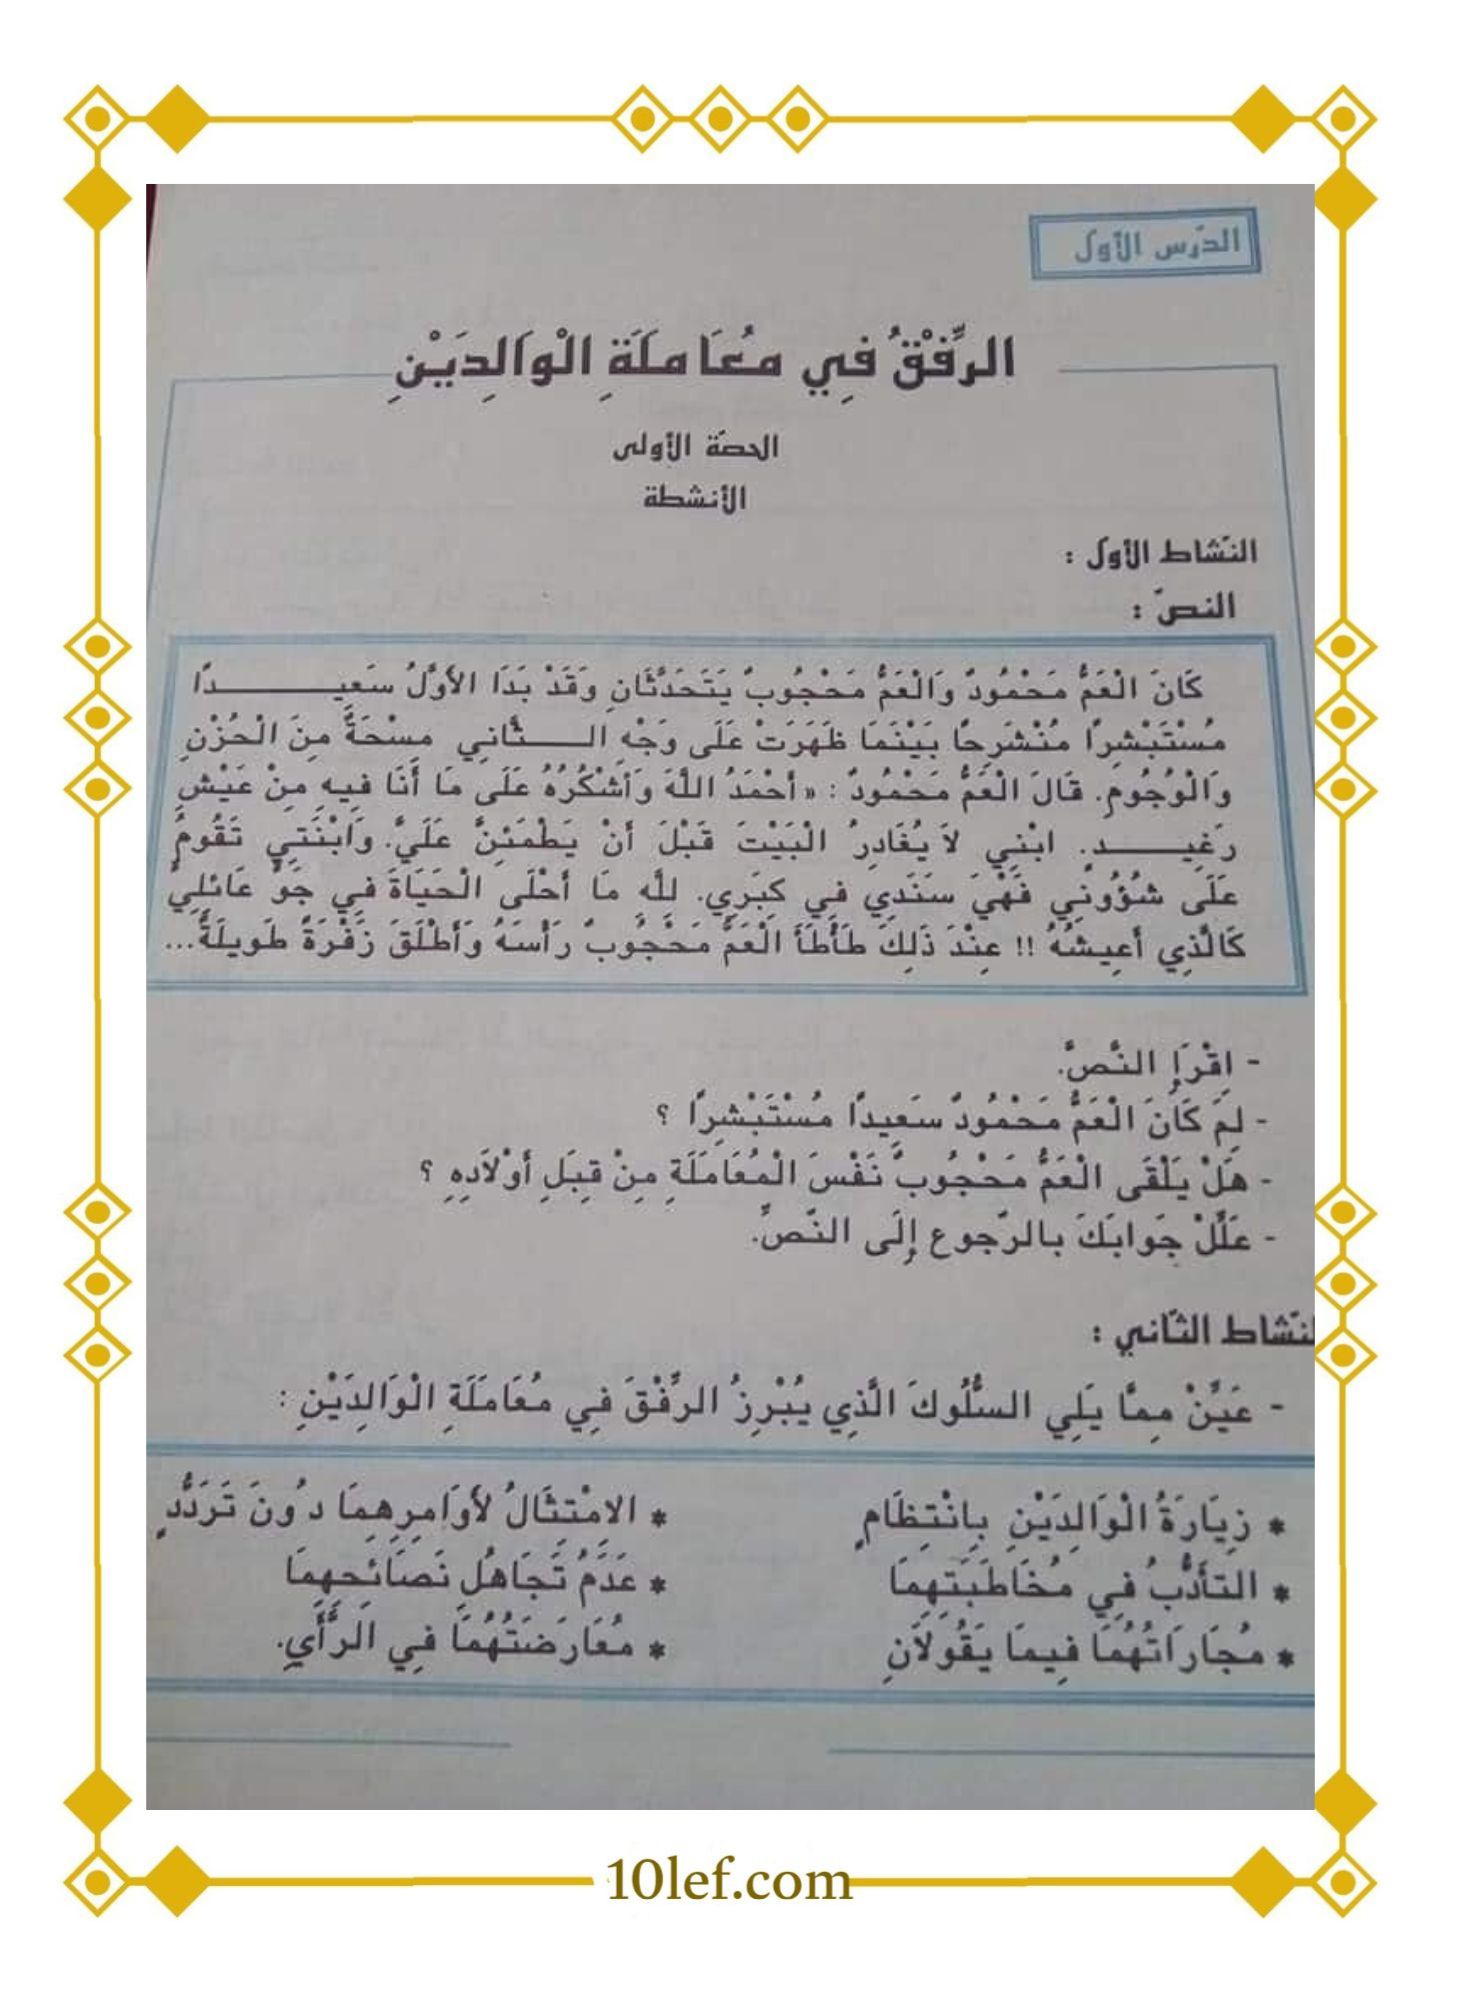 الدّرس الأوّل
الرِّفْقُ فِي مُعَامَلَةِ الْوَالِدَيْنِ
الحصّة الأولى
الأنشطة
النّشاط الأوّل :
النصّ :
كَانَ الْعَمُّ مَحْمُودٌ وَالْعَمُّ مَحْجُوبٌ يَتَحَدَّثَانِ وَقَدْ بَدَا الأَوَّلُ سَعِيـــــــدًا
مُسْتَبْشِرًا مُنْشَرِحًا بَيْنَمَا ظَهَرَتْ عَلَى وَجْهِ الـــــثَّانِي مسْحَةٌ مِنَ الْحُزْنِ
وَالْوُجُومِ. قَالَ الْعَمُّ مَحْمُودٌ : « أَحْمَدُ اللَّهَ وَأَشْكُرُهُ عَلَى مَا أَنَا فِيهِ مِنْ عَيْشٍ
رَغِيـــــــدٍ. ابْنِي لاَ يُغَادِرُ الْبَيْتَ قَبْلَ أَنْ يَطْمَئِنَّ عَلَيَّ. وَابْنَتِي تَقُومُ
عَلَى شُؤُونِي فَهْيَ سَنَدِي فِي كِبَرِي. للَّهِ مَا أَحْلَى الْحَيَاةَ فِي جَوٍّ عَائِلِيٍّ
كَالَّذِي أَعِيشُهُ !! عِنْدَ ذَلِكَ طَأْطَأَ الْعَمُّ مَحْجُوبٌ رَأْسَهُ وَأَطْلَقَ زَفْرَةً طَوِيلَةً...
- اِقْرَإِ النَّصَّ.
- لِمَ كَانَ الْعَمُّ مَحْمُودٌ سَعِيدًا مُسْتَبْشِرًا ؟
- هَلْ يَلْقَى الْعَمُّ مَحْجُوبٌ نَفْسَ الْمُعَامَلَةِ مِنْ قِبَلِ أَوْلاَدِهِ ؟
- عَلِّلْ جَوابَكَ بالرّجوع إلَى النّصِّ.
لنّشاط الثّاني :
- عَيِّنْ مِمَّا يَلِي السُّلُوكَ الَّذِي يُبْرِزُ الرِّفْقَ فِي مُعَامَلَةِ الْوَالِدَيْنِ :
* زِيَارَةُ الْوَالِدَيْنِ بِانْتِظَامٍ * الاِمْتِثَالُ لأَوَامِرِهِمَا دُونَ تَرَدُّدٍ
* التأدُّبُ فِي مُخَاطَبَتِهِمَا * عَدَمُ تَجَاهُلِ نَصَائِحِهِمَا
* مُجَارَاتُهُمَا فِيمَا يَقُولاَنِ * مُعَارَضَتُهُمَا فِي الرَّأْيِ.
10lef.com